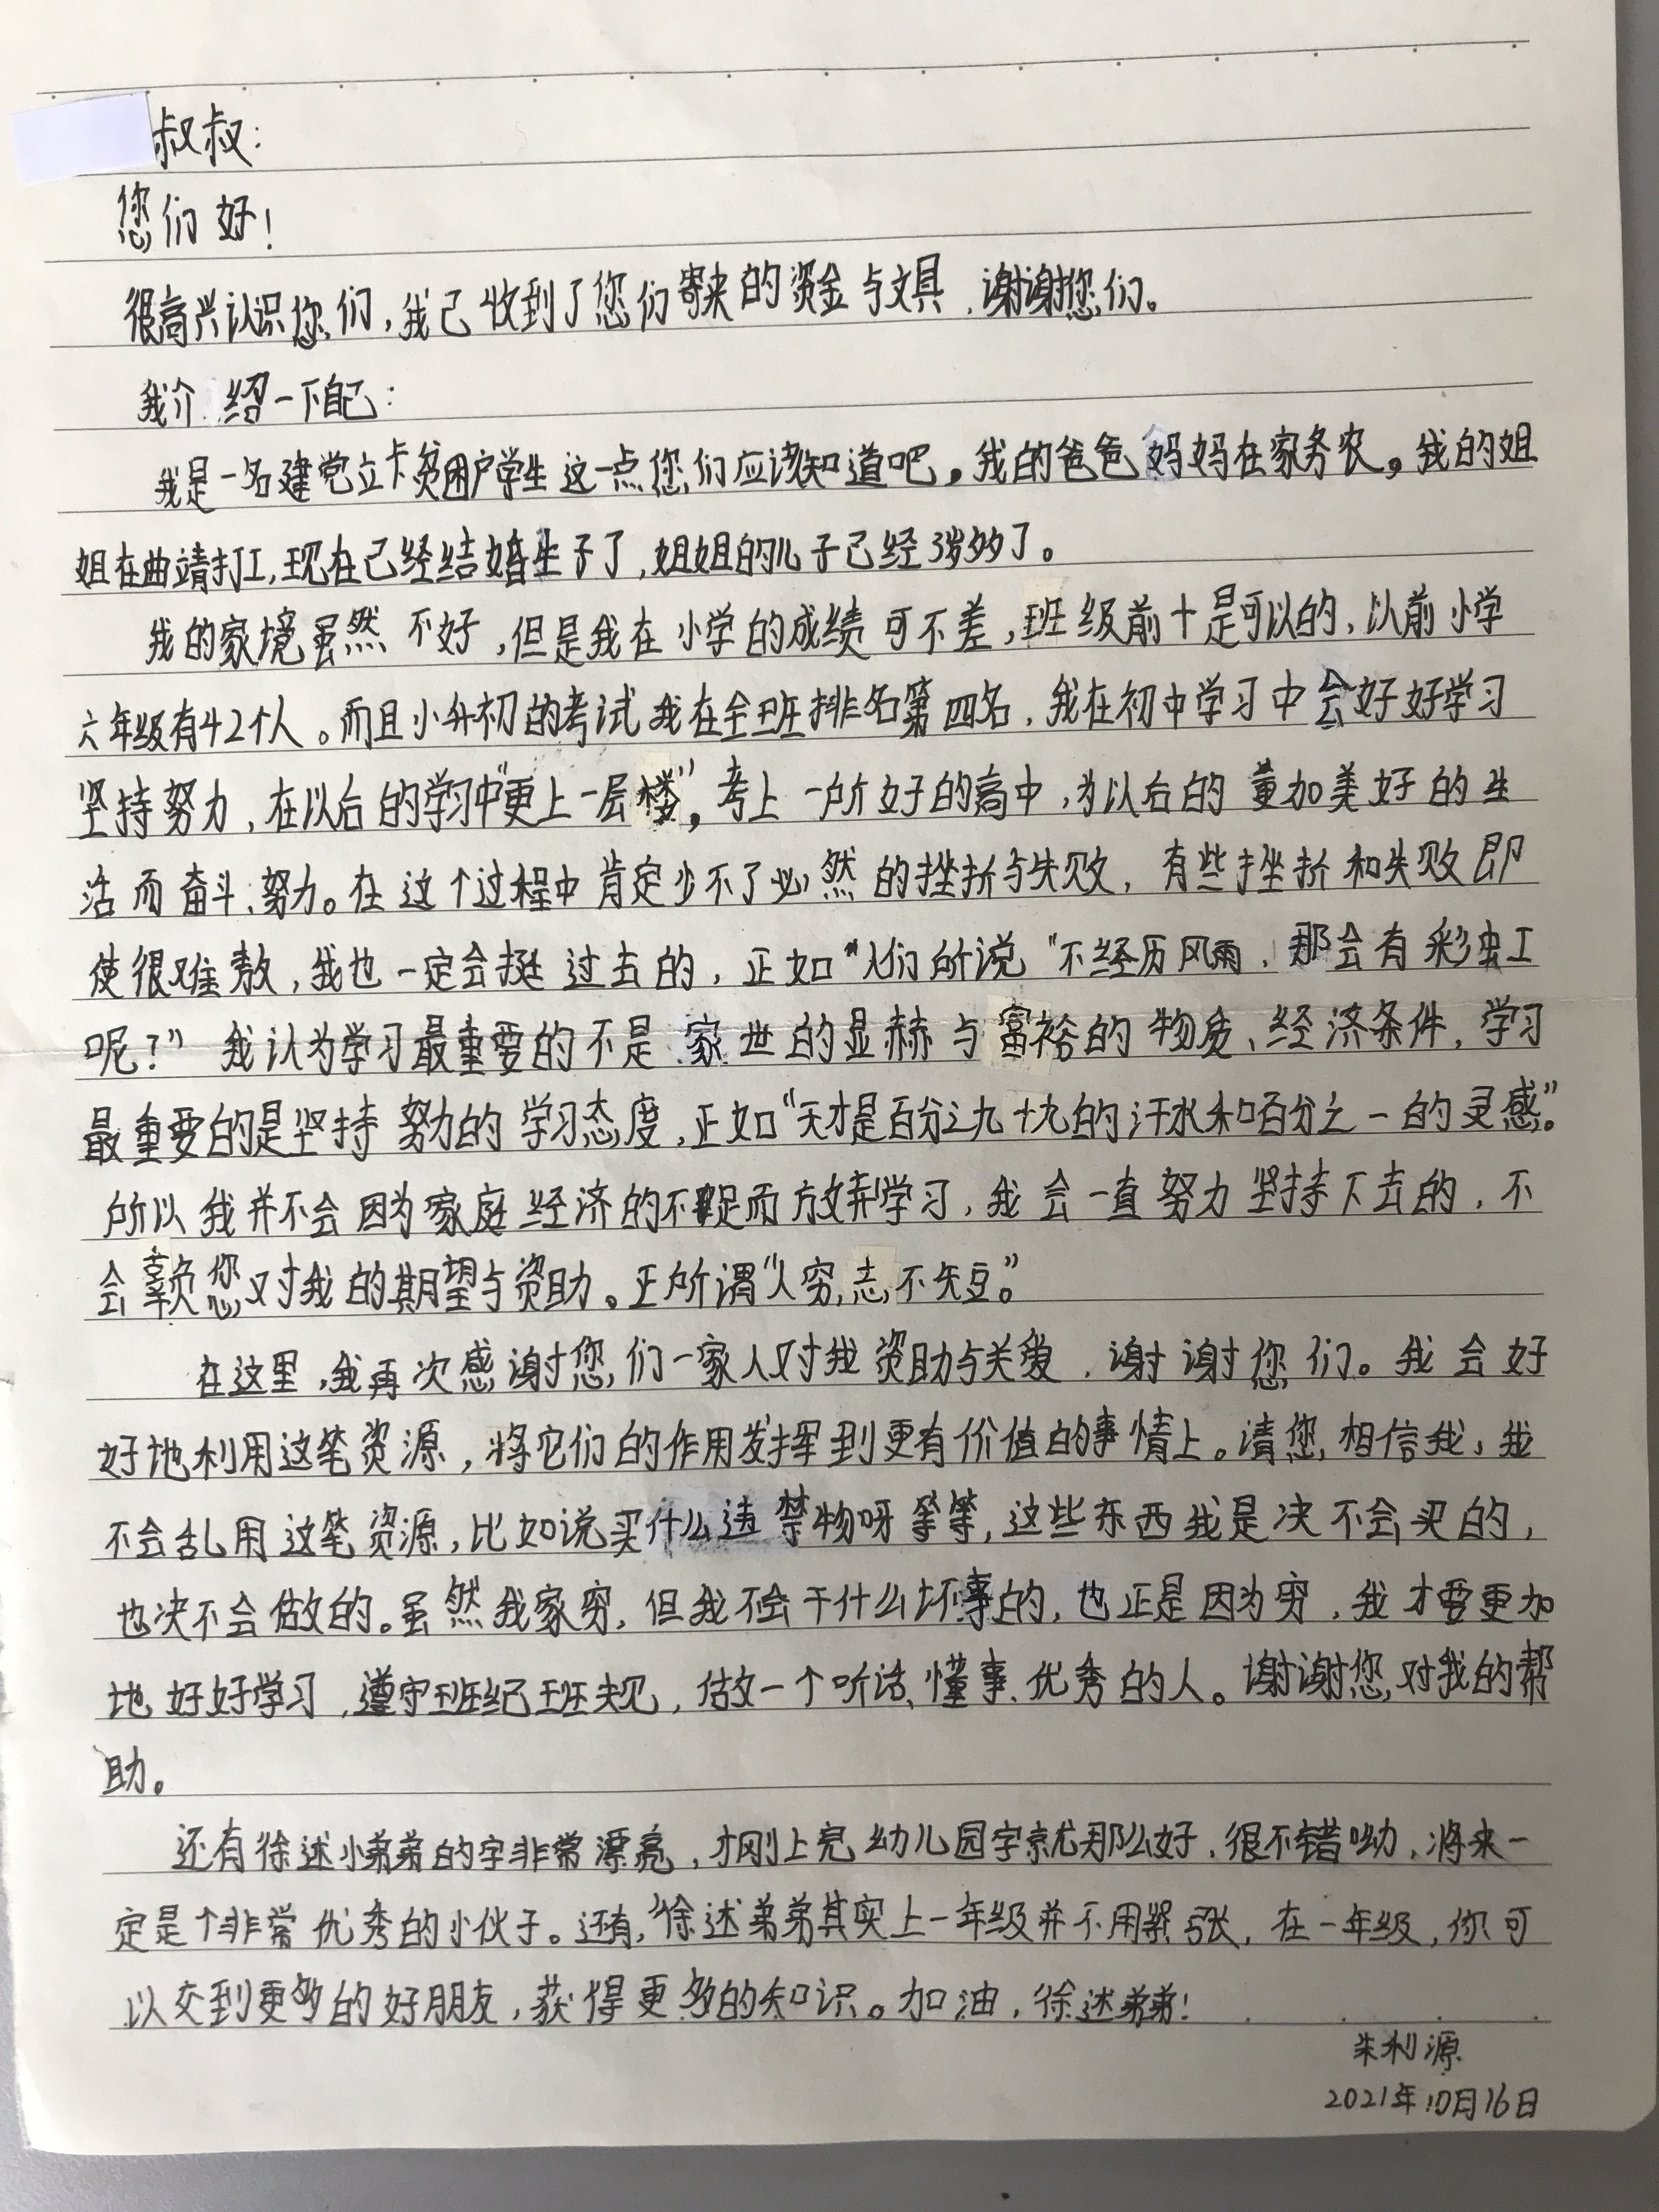 叔叔：
您们好！
很高兴认识您们，我已收到了您们寄来的资金与文具，谢谢您们。
我介绍一下自己：
我是一名建党立卡贫困户学生这一点您们应该知道吧。我的爸爸妈妈在家务农。我的姐
姐在曲靖打工，现在已经结婚生子了，姐姐的儿子已经3岁多了。
我的家境虽然不好，但是我在小学的成绩可不差，班级前十是可以的，以前小学
六年级有42个人。而且小升初的考试我在全班排名第四名，我在初中学习中会好好学习
坚持努力，在以后的学习中“更上一层楼”，考上一所好的高中，为以后的更加美好的生
活而奋斗、努力。在这个过程中肯定少不了必然的挫折与失败，有些挫折和失败即
使很难熬，我也一定会挺过去的，正如“人们所说“不经历风雨，那会有彩虹
呢？”我认为学习最重要的不是家世的显赫与富裕的物质、经济条件，学习
最重要的是坚持努力的学习态度，正如“天才是百分之九十九的汗水和百分之一的灵感”。
所以我并不会因为家庭经济的不足而放弃学习，我会一直努力坚持下去的，不
会辜负您对我的期望与资助。正所谓“人穷，志不短”。
在这里，我再次感谢您们一家人对我资助与关爱，谢谢您们。我会好
好地利用这笔资源，将它们的作用发挥到更有价值的事情上。请您相信我，我
不会乱用这笔资源，比如说买什么违禁物呀等等，这些东西我是决不会买的，
也决不会做的。虽然我家穷，但我不会干什么坏事的，也正是因为穷，我才要更加
地好好学习，遵守班纪班规，做一个听话、懂事、优秀的人。谢谢您对我的帮
助。
还有徐述小弟弟的字非常漂亮，才刚上完幼儿园字就那么好，很不错呦，将来一
定是个非常优秀的小伙子。还有，徐述弟弟其实上一年级并不用紧张，在一年级，你可
以交到更多的好朋友，获得更多的知识。加油，徐述弟弟！
朱利源
2021年10月16日